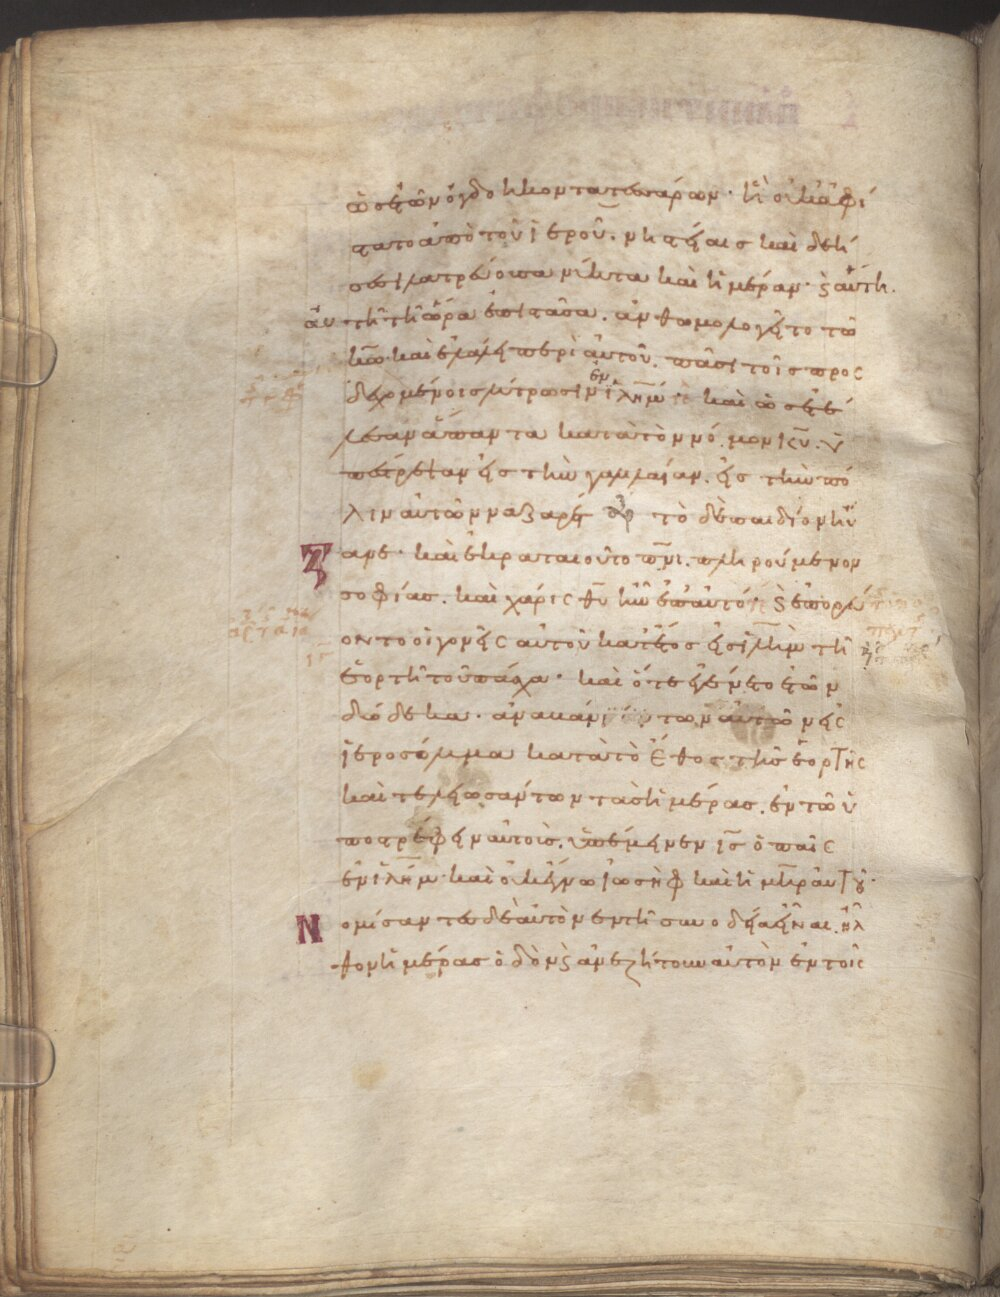 ὡς ἐτῶν ὀγδοήκοντατεσσάρων· ἣ οὐκ ἀφί
στατο ἀπὸ τοῦ ἱεροῦ. νηστείαις καὶ δεή
σεσι λατρεύουσα νύκτα καὶ ἡμέραν· ϛ αὕτη.
αὐτῇ τῇ ὥρα ἐπιστᾶσα. ἀνθωμολογεῖτο τῶ
κ̅ω̅· καὶ ἐλάλει περὶ αὐτοῦ. πᾶσι τοῖς προς
δεχομένοις λύτρωσιν ἐν ἱλη̅μ· καὶ ὡς ἐτέ
λεσαν ἅπαντα κατὰ τὸν νόμον κ̅υ̅. ὑ
πέστρεψαν εἰς τὴν γαλιλαίαν. εἰς τὴν πό
λιν αὐτῶν ναζαρέτ τὸ δὲ παιδίον ηὔ
ξανε· καὶ ἐκραταιοῦτο π̅ν̅ι. πληρούμενον
σοφίας. καὶ χάρις θ̅υ̅ ἦν ἐπ αὐτό· ϛ ἐπορεύ
οντο οἱ γονεῖς αὐτοῦ κατ ἔτος εἰς ἱλη̅μ τῆ
ἑορτῆ τοῦ πάσχα· καὶ ὅτε ἐγένετο ἐτῶν
δώδεκα· ἀναβάντων αὐτῶν εἰς
ἱεροσόλυμα κατὰ τὸ ἔθος τῆς ἑορτῆς
καὶ τελειωσάντων τὰς ἡμέρας. ἐν τῶ ὑ
ποστρέφειν αὐτοὺς. ὑπέμεινεν ι̅ς̅ ὁ παῖς
ἐν ἱλη̅μ· καὶ οὐκ ἔγνω ἰωσὴφ καὶ ἡ μ̅η̅ρ αὐτοῦ·
Νομίσαντες δὲ αὐτὸν ἐν τῆ συνοδεία εἶναι. ἦλ
θον ἡμέρας ὁδὸν ϛ ἀνεζήτουν αὐτὸν ἐν τοῖς